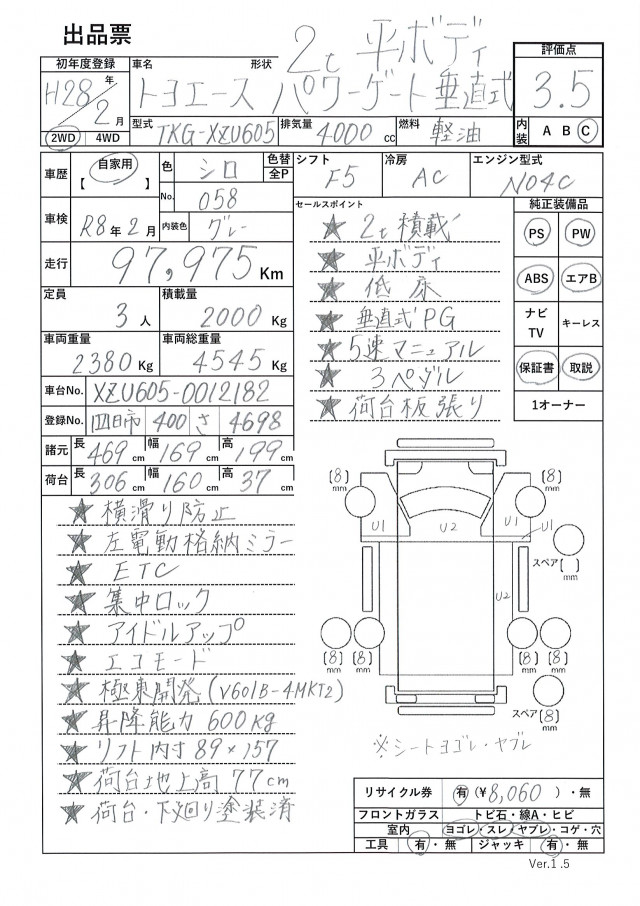 出品票
2t 平ボディ
初年度登録 車名 形状 評価点
H28年 2月 トヨエース パワーゲート垂直式 3.5
2WD 4WD 型式 TKG-XZU605 排気量 4000 cc 燃料 軽油 内装 A B C
車歴 自家用 【 】 色 シロ 色替 全P シフト F5 冷房 AC エンジン型式 N04C
No. 058
車検 R8年2月 内装色 グレー
走行 97,975 Km
定員 3人 積載量 2000 Kg
車両重量 2380 Kg 車両総重量 4545 Kg
車台No. XZU605-0012182
登録No. 四日市 400 さ 4698
諸元 長 469 cm 幅 169 cm 高 199 cm
荷台 長 306 cm 幅 160 cm 高 37 cm
セールスポイント
★ 2t積載
★ 平ボディ
★ 低床
★ 垂直式PG
★ 5速マニュアル
★ 3ペダル
★ 荷台板張り
純正装備品
PS PW
ABS エアB
ナビ TV キーレス
保証書 取説
1オーナー
★ 横滑り防止
★ 左電動格納ミラー
★ ETC
★ 集中ロック
★ アイドルアップ
★ エコモード
★ 極東開発(V601B-4MKT2)
★ 昇降能力600kg
★ リフト内寸89×157
★ 荷台地上高77cm
★ 荷台・下廻り塗装済
[8] mm [8] mm
U1 U2 U1 U1
スペア[ ] mm
U2
[8] mm [8] mm [8] mm [8] mm
スペア[8] mm
※シートヨゴレ・ヤブレ
リサイクル券 有(¥8,060)・無
フロントガラス トビ石・線A・ヒビ
室内 ヨゴレ・スレ・ヤブレ・コゲ・穴
工具 有・無 ジャッキ 有・無
Ver.1.5